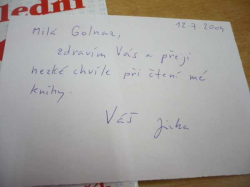 lední
12.7 2004
Milé Golnaz,
zdravím Vás a přeji
hezké chvíle při čtení mé
knihy.
Váš Jirka